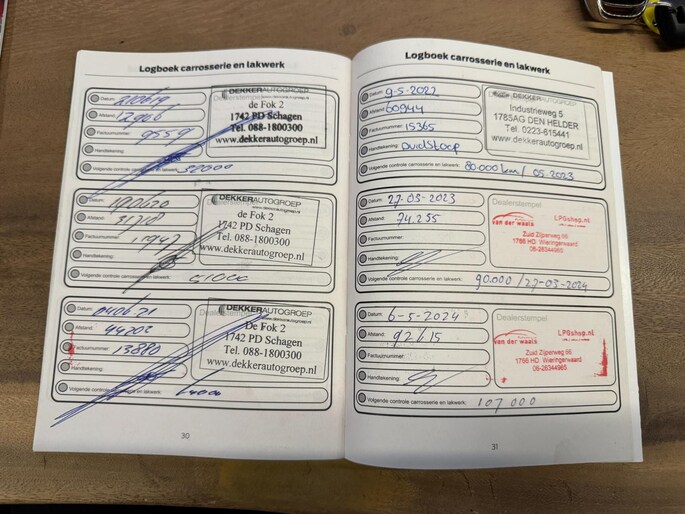 Logboek carrosserie en lakwerk
Datum: 210619
Afstand: 12966
Factuurnummer: 9559
Handtekening:
Volgende controle carrosserie en lakwerk: 32000
Dealerstempel
DEKKERAUTOGROEP
de Fok 2
1742 PD Schagen
Tel. 088-1800300
www.dekkerautogroep.nl
Datum: 190620
Afstand: 31718
Factuurnummer: 11947
Handtekening:
Volgende controle carrosserie en lakwerk: 51000
DEKKERAUTOGROEP
de Fok 2
1742 PD Schagen
Tel. 088-1800300
www.dekkerautogroep.nl
Datum: 040621
Afstand: 44202
Factuurnummer: 13880
Handtekening:
Volgende controle carrosserie en lakwerk: 64000
DEKKERAUTOGROEP
De Fok 2
1742 PD Schagen
Tel. 088-1800300
www.dekkerautogroep.nl
30
Logboek carrosserie en lakwerk
Datum: 9-5-2022
Afstand: 60944
Factuurnummer: 15365
Handtekening:
Volgende controle carrosserie en lakwerk: 80.000 km/ 05-2023
DEKKERAUTOGROEP
Industrieweg 5
1785AG DEN HELDER
Tel. 0223-615441
www.dekkerautogroep.nl
Datum: 27-03-2023
Afstand: 74.255
Factuurnummer:
Handtekening:
Volgende controle carrosserie en lakwerk: 90.000 /27-03-2024
Dealerstempel
van der waals
LPGshop.nl
Zuid Zijperweg 66
1766 HD Wieringerwaard
06-26344965
Datum: 6-5-2024
Afstand: 92615
Factuurnummer:
Handtekening:
Volgende controle carrosserie en lakwerk: 107000
Dealerstempel
van der waals
LPGshop.nl
Zuid Zijperweg 66
1766 HD Wieringerwaard
06-26344965
31